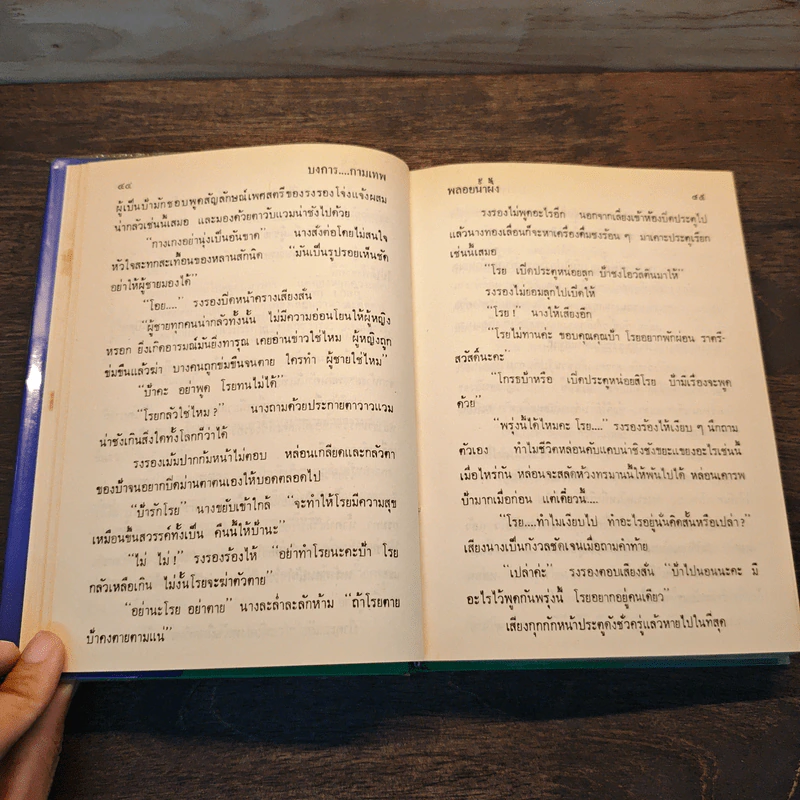 ๔๔
บงการ....กามเทพ
ผู้เป็นป้ามักชอบพูดสัญลักษณ์เพศสตรีของรงรองโจ่งแจ้งผสม
น่ากลัวเช่นนี้เสมอ และมองด้วยตาวับแวมน่าชังไปด้วย
“กางเกงอย่านุ่งเป็นอันขาด” นางสั่งต่อโดยไม่สนใจ
หัวใจสะทกสะเทื้อนของหลานสักนิด “มันเป็นรูปรอยเห็นชัด
อย่าให้ผู้ชายมองได้”
“โอย....” รงรองปิดหน้าครางเสียงสั่น
“ผู้ชายทุกคนน่ากลัวทั้งนั้น ไม่มีความอ่อนโยนให้ผู้หญิง
หรอก ยิ่งเกิดอารมณ์มันยิ่งทารุณ เคยอ่านข่าวใช่ไหม ผู้หญิงถูก
ข่มขืนแล้วฆ่า บางคนถูกข่มขืนจนตาย ใครทำ ผู้ชายใช่ไหม”
“ป้าคะ อย่าพูด โรยทนไม่ได้”
“โรยกลัวใช่ไหม ?” นางถามด้วยประกายตาวาวแวม
น่าชังเกินสิ่งใดทั้งโลกก็ว่าได้
รงรองเม้มปากก้มหน้าไม่ตอบ หล่อนเกลียดและกลัวตา
ของป้าจนอยากปิดม่านตาตนเองให้บอดตลอดไป
“ป้ารักโรย” นางขยับเข้าใกล้ “จะทำให้โรยมีความสุข
เหมือนขึ้นสวรรค์ทั้งเป็น คืนนี้ให้ป้านะ”
“ไม่ ไม่ !” รงรองร้องไห้ “อย่าทำโรยนะคะป้า โรย
กลัวเหลือเกิน ไม่งั้นโรยจะฆ่าตัวตาย”
“อย่านะโรย อย่าตาย” นางละล่ำละลักห้าม “ถ้าโรยตาย
ป้าคงตายตามแน่”
พลอยน้ำผึ้ง
๔๕
รงรองไม่พูดอะไรอีก นอกจากเลี่ยงเข้าห้องปิดประตูไป
แล้วนางทองเลื่อนก็จะหาเครื่องดื่มชงร้อน ๆ มาเคาะประตูเรียก
เช่นนี้เสมอ
“โรย เปิดประตูหน่อยลูก ป้าชงโอวัลตินมาให้”
รงรองไม่ยอมลุกไปเปิดให้
“โรย !” นางให้เสียงอีก
“โรยไม่ทานค่ะ ขอบคุณคุณป้า โรยอยากพักผ่อน ราตรี-
สวัสดิ์นะคะ”
“โกรธป้าหรือ เปิดประตูหน่อยสิโรย ป้ามีเรื่องจะพูด
ด้วย”
“พรุ่งนี้ได้ไหมคะ โรย....” รงรองร้องไห้เงียบ ๆ นึกถาม
ตัวเอง ทำไมชีวิตหล่อนคับแคบน่าชิงชังขยะแขยงอะไรเช่นนี้
เมื่อไหร่กัน หล่อนจะสลัดห้วงทรมานนี้ให้พ้นไปได้ หล่อนเคารพ
ป้ามากเมื่อก่อน แต่เดี๋ยวนี้....
“โรย....ทำไมเงียบไป ทำอะไรอยู่นั่นคิดสั้นหรือเปล่า ?”
เสียงนางเป็นกังวลชัดเจนเมื่อถามคำท้าย
“เปล่าค่ะ” รงรองตอบเสียงสั่น “ป้าไปนอนนะคะ มี
อะไรไว้พูดกันพรุ่งนี้ โรยอยากอยู่คนเดียว”
เสียงกุกกักหน้าประตูดังชั่วครู่แล้วหายไปในที่สุด